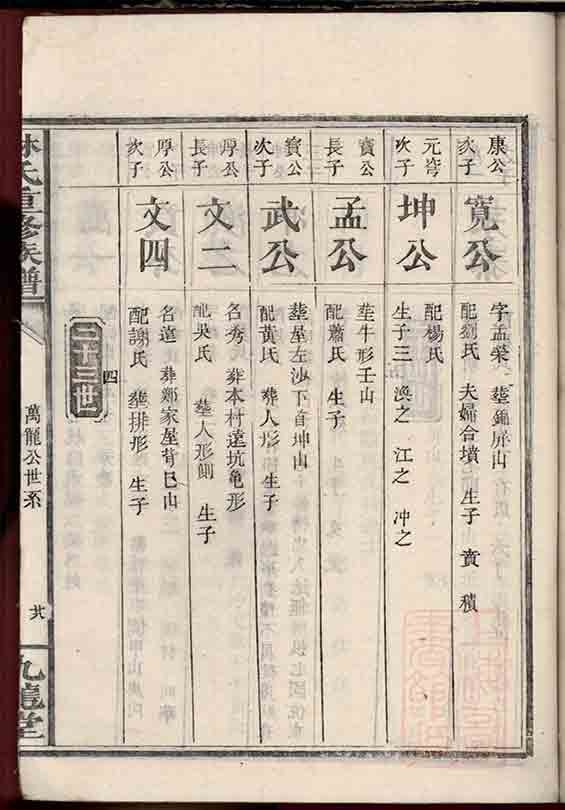 康公
次子
寬公
字孟榮 塟錦屏山
配劉氏 夫婦合墳 生子 賁 積
元夸
次子
坤公
配楊氏
生子三 渙之 江之 冲之
寳公
長子
孟公
塟牛形壬山
配蕭氏 生子
寳公
次子
武公
塟屋左沙下首坤山
配黃氏 葬人形 生子
厚公
長子
文二
名秀 葬本村遠坑亀形
配吳氏 塟人形側 生子
厚公
次子
文四
名遠 葬鄭家屋背巳山
配謝氏 塟排形 生子
四
二十三世
林氏重修族譜
萬龍公世系
廿六
九龍堂